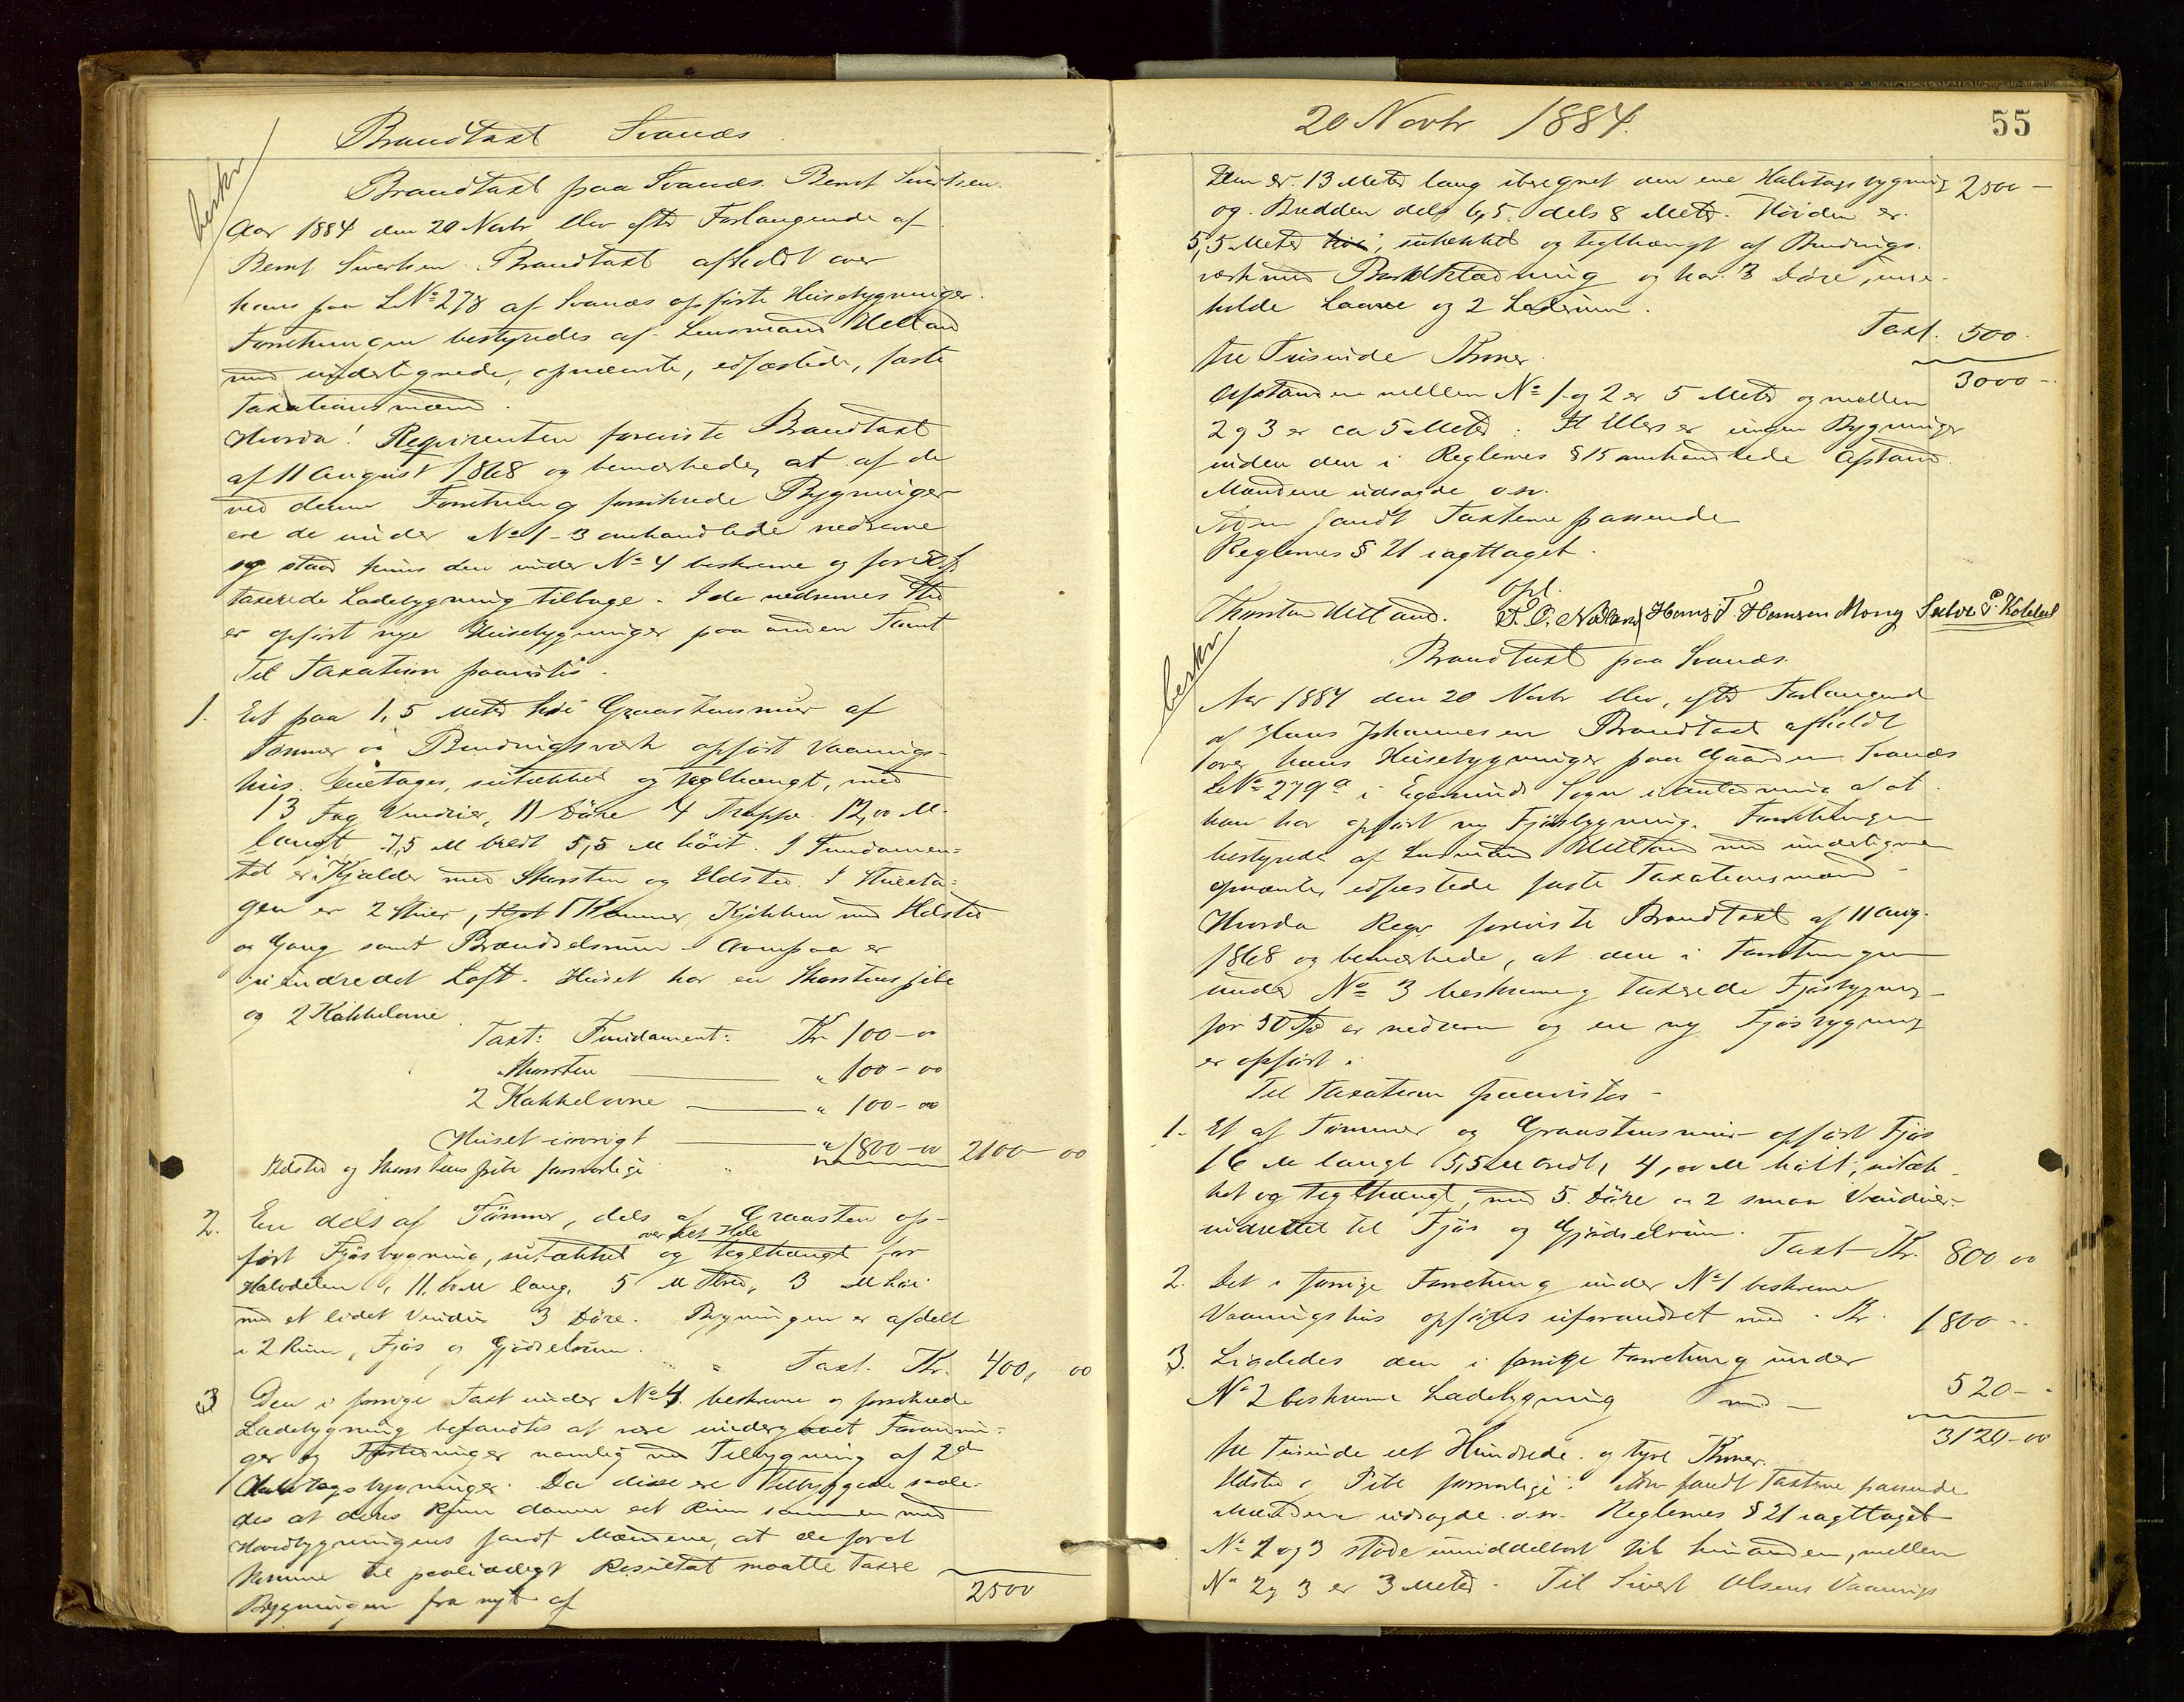 Brandtaxt Svanæs.
beskr
Brandtaxt paa Svanæs. Bernt Sivertsen.
Aar 1884 den 20 Novbr blev efter Forlangende af
Bernt Sivertsen Brandtaxt afholdt over
hans paa L№ 278 af Svanæs opførte Husebygninger.
Forretningen bestyredes af Lensmand Uelland
med undertegnede, opnævnte, edfæstede, faste
Taxationsmænd.
Hvorda! Reqvirenten foreviste Brandtaxt
af 11 August 1868 og bemærkede, at af de
ved denne Forretning forsikrede Bygninger
ere de under № 1-3 omhandlede nedrevne
og staar kuns den under № 4 beskrevne og for
taxerede Ladebygning tilbage. I de nedrevnes Sted
er opført nye Husebygninger paa anden Tomt
Til Taxation paavistes.
1. Et paa 1,5 Meter høi Graastensmur af
Tømmer og Bindingsværk opført Vaanings-
hus. Enetages, sutækket og teglhængt, med
13 Fag Vinduer, 11 Døre 4 Trapper. 12,00 M.
langt 7,5 M bredt 5,5 M høit. I Fundamen=
tet er Kjælder med Skorsten og Ildsted. I Stueeta=
gen er 2 Stuer, 1 Kammer, Kjøkken med Ildsted
og Gang samt Brændselsrum. Ovenpaa er
uindredet Loft. Huset har en Skorstenspibe
og 2 Kakkelovne
Taxt: Fundament: Kr 100-00
Skorsten " 100-00
2 Kakkelovne " 100-00
Huset iøvrigt " 1800-00 2100-00
Ildsted og Skorstenspibe forsvarlige
2. En dels af Tømmer, dels af Graasten op-
over det Hele
ført Fjøsbygning, sutækket og teglhængt for
Halvdelen, 11, M lang, 5 M bred, 3 M høi
med et lidet Vindue 3 Døre. Bygningen er afdelt
i 2 Rum, Fjøs og Gjødselrum.
Taxt. Kr. 400, 00
3 Den i forrige Taxt under № 4 beskrevne og forsikrede
Ladebygning befandtes at være undergaaet Forandrin=
ger og Forbedringer namlig med Tilbygning af 2de
Halvtagsbygninger. Da disse ere tilbyggede saale-
des at deres Rum danne eet Rum sammen med
Hovedbygningens fandt Mændene, at de forat
komme til paalideligt Resultat maatte taxere
Bygningen fra nyt af
2500
20 Novbr 1884.
55
Den er. 13 Meter lang iberegnet den ene Halvtagsbygning 2500 —
og. Bredden dels 6,5. dels 8 Meter. Høiden er.
5,5 Meter høi; sutækket og teglhængt af Bindings.
værk med Bordklædning og har 3 Døre, inde-
holde Laave og 2 Laderum.
Taxt. 500.
tre Tusinde Kroner.
3000 —
Afstanden mellem № 1 og 2 er 5 Meter og mellem
2 og 3 er ca 5 Meter. Ellers er ingen Bygninger
inden den i Reglernes § 15 omhandlede Afstand.
Mændene udsagde o.sv.
fandt Taxterne passende
Reglernes § 21 iagttaget.
Opl.
Thorsten Uelland. Hans T. Hansen Mong
beskr
Brandtaxt paa Svanæs.
Aar 1884 den 20 Novbr blev, efter Forlangende
af Hans Johannesen Brandtaxt afholdt
over hans Husebygninger paa Gaarden Svanæs
L№ 279a i Egersunds Sogn i Anledning af at
han har opført ny Fjøsbygning. Forretningen
bestyredes af Lensmand Uelland med undertegnede
opnævnte, edfæstede faste Taxationsmænd
Hvorda Reqv. foreviste Brandtaxt af 11 Aug.
1868 og bemærkede, at den i Forretningen
under № 3 beskrevne og taxerede Fjøsbygning
for 30 Spd er nedreven og en ny Fjøsbygning
er opført i
Til Taxation paavistes -
1. Et af Tømmer og Graastensmur opført Fjøs
16 M langt 5,5 M bredt, 4,00 M høit; sutæk-
ket og teglhængt, med 5. Døre og 2 smaa Vinduer
indrettet til Fjøs og Gjødselrum.
Taxt Kr. 800 00
2. Det i forrige Forretning under № 1 beskrevne
Vaaningshus opføres uforandret med Kr. 1800 --
3. Ligeledes den i forrige Forretning under
№ 2 beskrevne Ladebygning med — 520 - -
3120-00
tre Tusinde eet Hundrede og tyve Kroner.
Ildsted og Pibe forsvarlige. fandt Taxterne passende
Mændene udsagde o.sv. Reglernes § 21 iagttaget
№ 2 og 3 støde umiddelbart til hinanden, mellem
№ 2 og 3 er 3 Meter. Til Sivert Olsens Vaanings